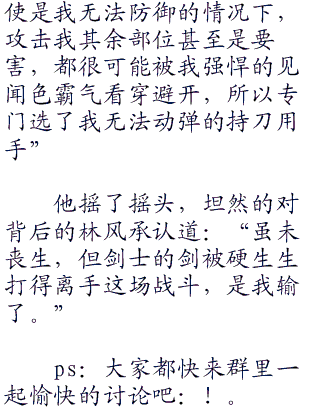 使是我无法防御的情况下，
攻击我其余部位甚至是要
害，都很可能被我强悍的见
闻色霸气看穿避开，所以专
门选了我无法动弹的持刀用
手”
他摇了摇头，坦然的对
背后的林风承认道：“虽未
丧生，但剑士的剑被硬生生
打得离手这场战斗，是我输
了。”
ps：大家都快来群里一
起愉快的讨论吧：！。